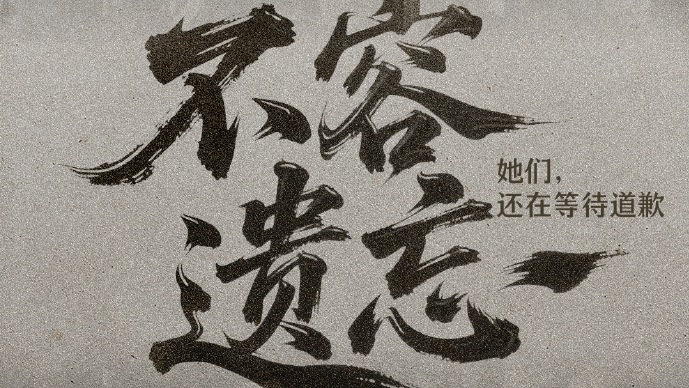 不容
遗忘
她们，
还在等待道歉